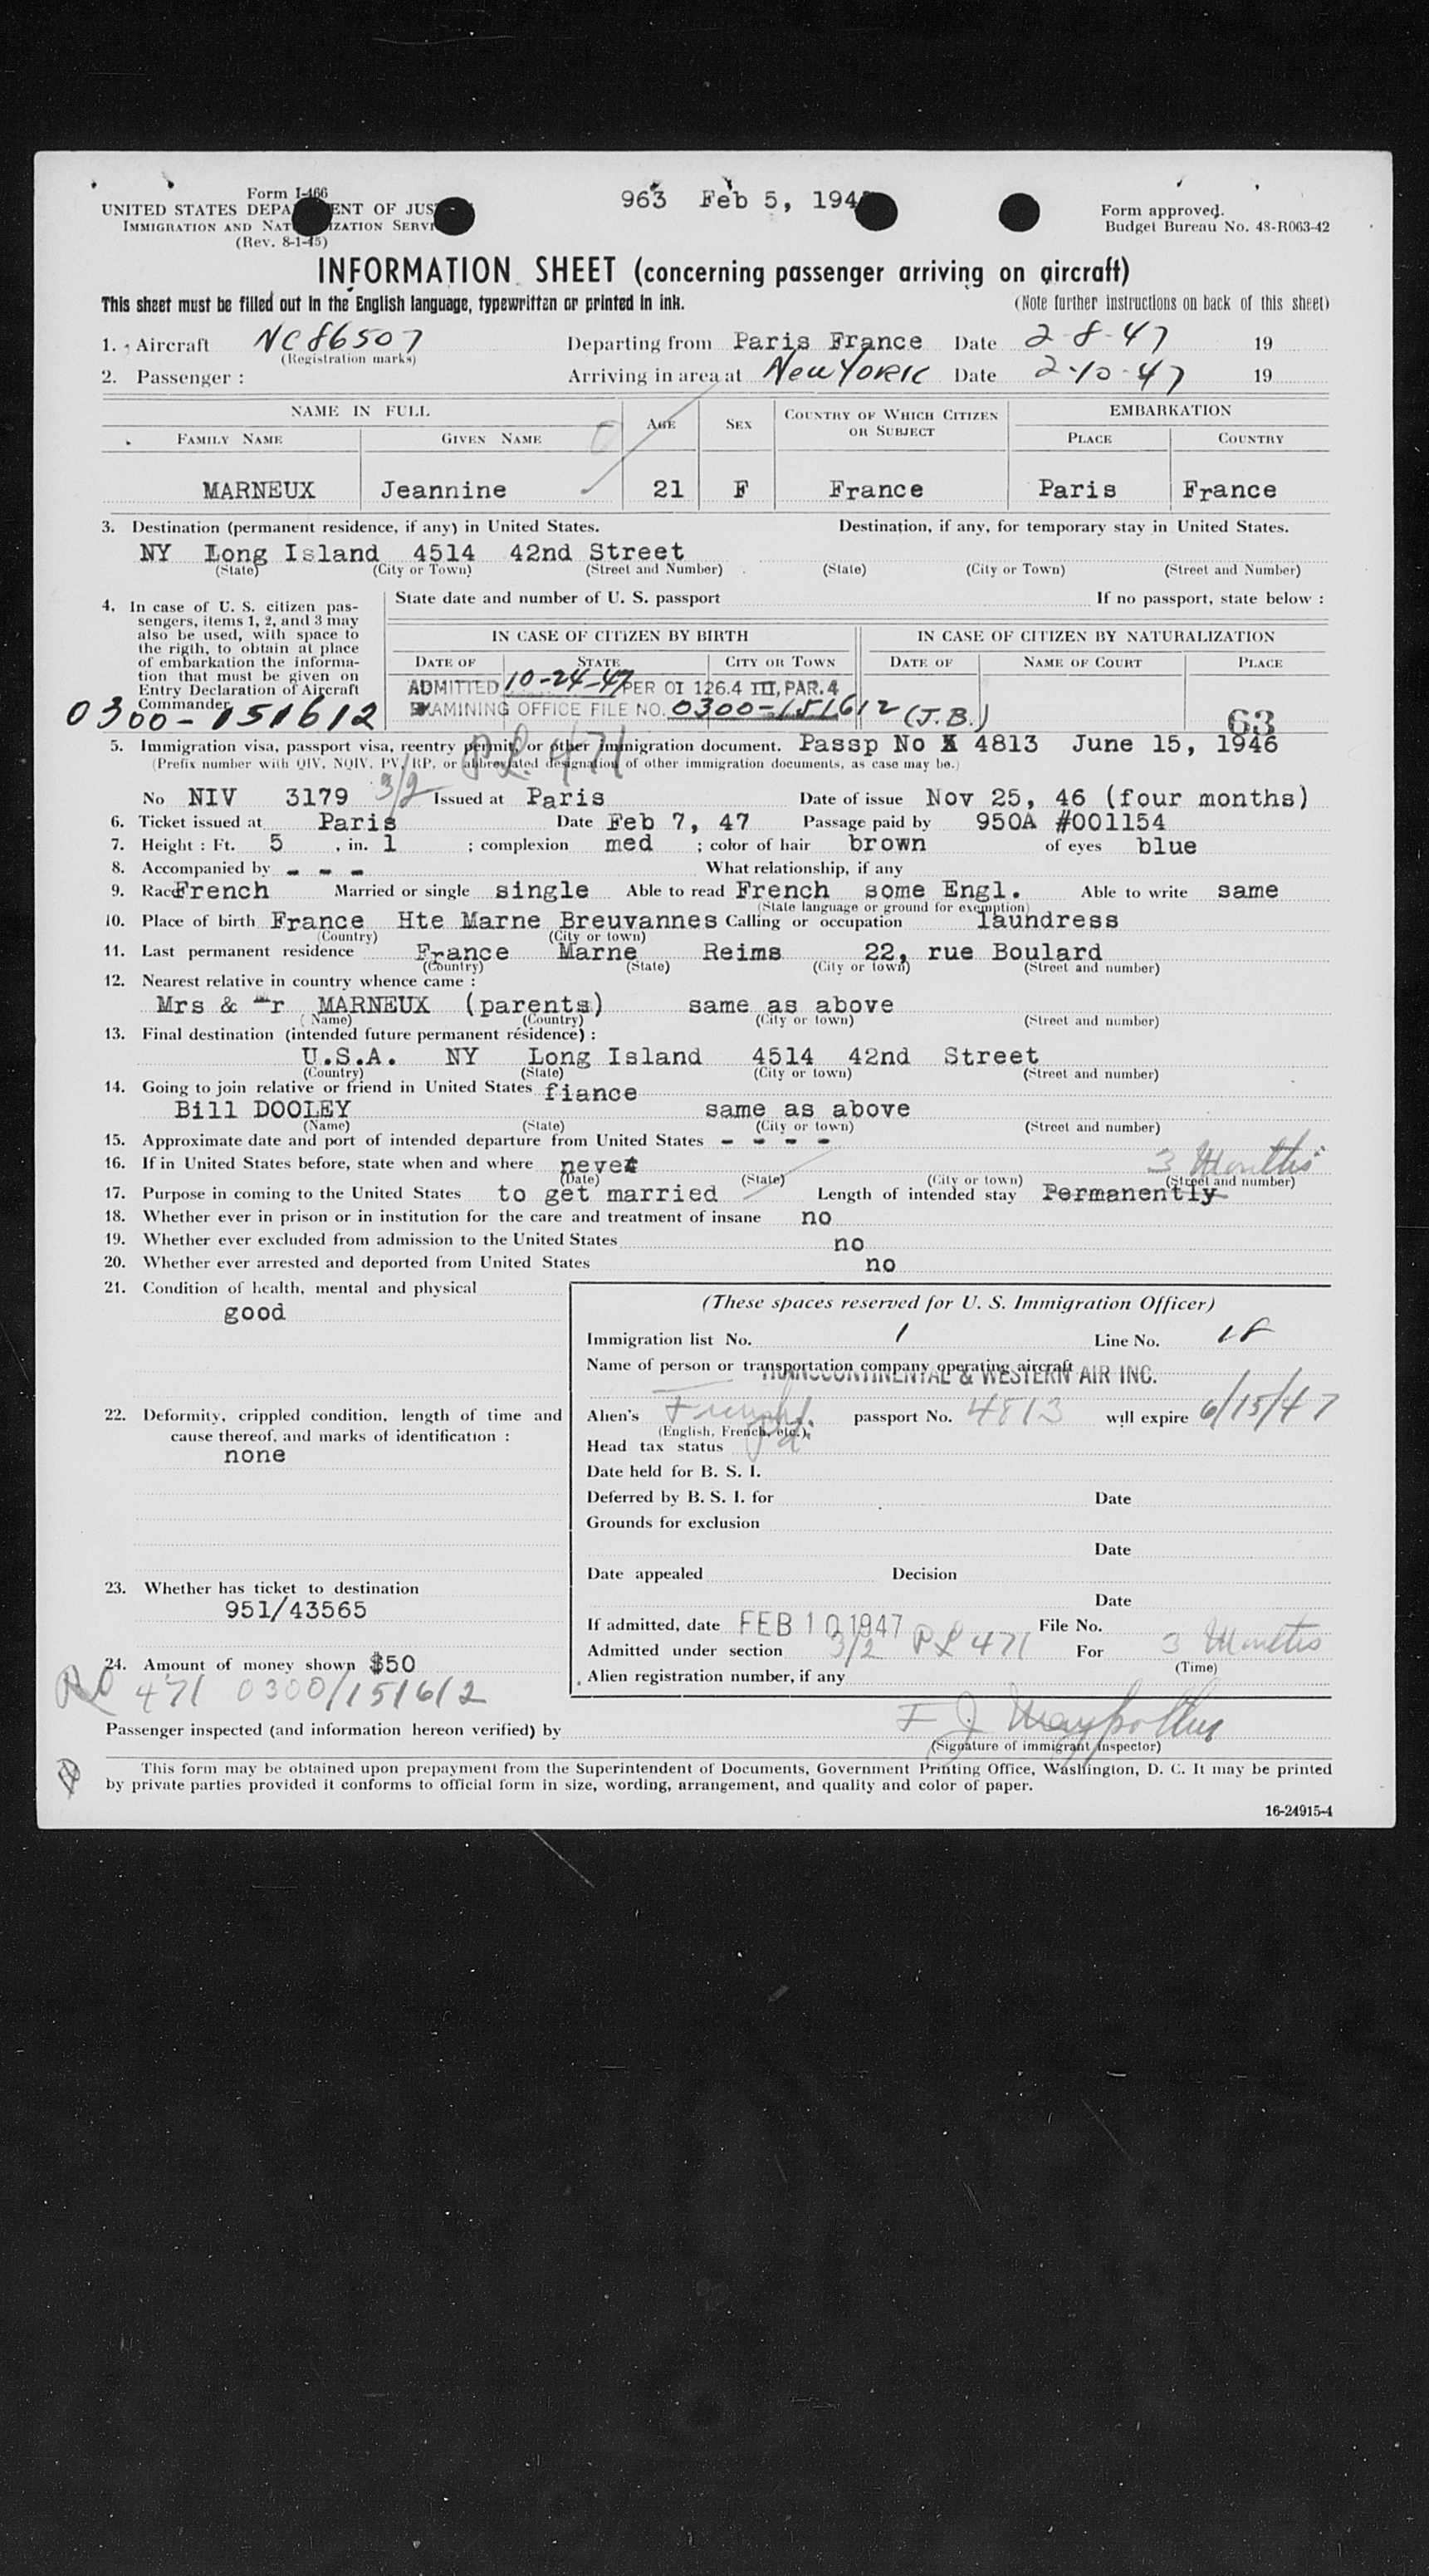 Form I-466
UNITED STATES DEPA ENT OF JUS
IMMIGRATION AND NAT IZATION SERVI
(Rev. 8-1-45)
963 Feb 5, 194
Form approved.
Budget Bureau No. 43-R063-42
INFORMATION SHEET (concerning passenger arriving on aircraft)
This sheet must be filled out in the English language, typewritten or printed in ink.
(Note further instructions on back of this sheet)
1. Aircraft NC86507 Departing from Paris France Date 2-8-47 19
(Registration marks)
2. Passenger : Arriving in area at New YORK Date 2-10-47 19
NAME IN FULL AGE SEX COUNTRY OF WHICH CITIZEN OR SUBJECT EMBARKATION
FAMILY NAME GIVEN NAME PLACE COUNTRY
MARNEUX Jeannine 21 F France Paris France
3. Destination (permanent residence, if any) in United States. Destination, if any, for temporary stay in United States.
NY Long Island 4514 42nd Street
(State) (City or Town) (Street and Number) (State) (City or Town) (Street and Number)
4. In case of U. S. citizen pas-
sengers, items 1, 2, and 3 may
also be used, with space to
the rigth, to obtain at place
of embarkation the informa-
tion that must be given on
Entry Declaration of Aircraft
Commander.
0300-151612
State date and number of U. S. passport If no passport, state below :
IN CASE OF CITIZEN BY BIRTH IN CASE OF CITIZEN BY NATURALIZATION
DATE OF STATE CITY OR TOWN DATE OF NAME OF COURT PLACE
ADMITTED 10-24-47 PER OI 126.4 III, PAR. 4
EXAMINING OFFICE FILE NO. 0300-151612 (J.B.)
63
5. Immigration visa, passport visa, reentry permit, or other immigration document. Passp No X 4813 June 15, 1946
(Prefix number with QIV, NQIV, PV, RP, or abbreviated designation of other immigration documents, as case may be.)
P.L. 471
No NIV 3179 3/2 Issued at Paris Date of issue Nov 25, 46 (four months)
6. Ticket issued at Paris Date Feb 7, 47 Passage paid by 950A #001154
7. Height : Ft. 5 , in. 1 ; complexion med ; color of hair brown of eyes blue
8. Accompanied by - - - What relationship, if any
9. Race French Married or single single Able to read French some Engl. Able to write same
(State language or ground for exemption)
10. Place of birth France Hte Marne Breuvannes Calling or occupation laundress
(Country) (City or town)
11. Last permanent residence France Marne Reims 22, rue Boulard
(Country) (State) (City or town) (Street and number)
12. Nearest relative in country whence came :
Mrs & Mr MARNEUX (parents) same as above
(Name) (Country) (City or town) (Street and number)
13. Final destination (intended future permanent résidence) :
U.S.A. NY Long Island 4514 42nd Street
(Country) (State) (City or town) (Street and number)
14. Going to join relative or friend in United States fiance
Bill DOOLEY same as above
(Name) (State) (City or town) (Street and number)
15. Approximate date and port of intended departure from United States - - - -
16. If in United States before, state when and where never
3 Months
(Date) (State) (City or town) (Street and number)
17. Purpose in coming to the United States to get married Length of intended stay Permanently
18. Whether ever in prison or in institution for the care and treatment of insane no
19. Whether ever excluded from admission to the United States no
20. Whether ever arrested and deported from United States no
21. Condition of health, mental and physical
good
22. Deformity, crippled condition, length of time and
cause thereof, and marks of identification :
none
23. Whether has ticket to destination
951/43565
24. Amount of money shown $50
471 0300/151612
(These spaces reserved for U. S. Immigration Officer)
Immigration list No. 1 Line No. 18
Name of person or transportation company operating aircraft
TRANSCONTINENTAL & WESTERN AIR INC.
Alien's French passport No. 4813 will expire 6/15/47
(English, French, etc.)
Head tax status pd.
Date held for B. S. I.
Deferred by B. S. I. for Date
Grounds for exclusion
Date
Date appealed Decision
Date
If admitted, date FEB 10 1947 File No.
Admitted under section 3/2 PL 471 For 3 Months
(Time)
Alien registration number, if any
Passenger inspected (and information hereon verified) by F J
(Signature of immigrant inspector)
This form may be obtained upon prepayment from the Superintendent of Documents, Government Printing Office, Washington, D. C. It may be printed
by private parties provided it conforms to official form in size, wording, arrangement, and quality and color of paper.
16-24915-4